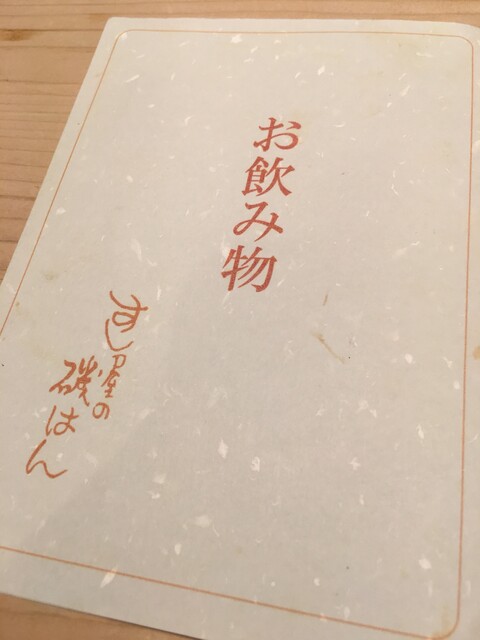 お飲み物
すし屋の
磯はん